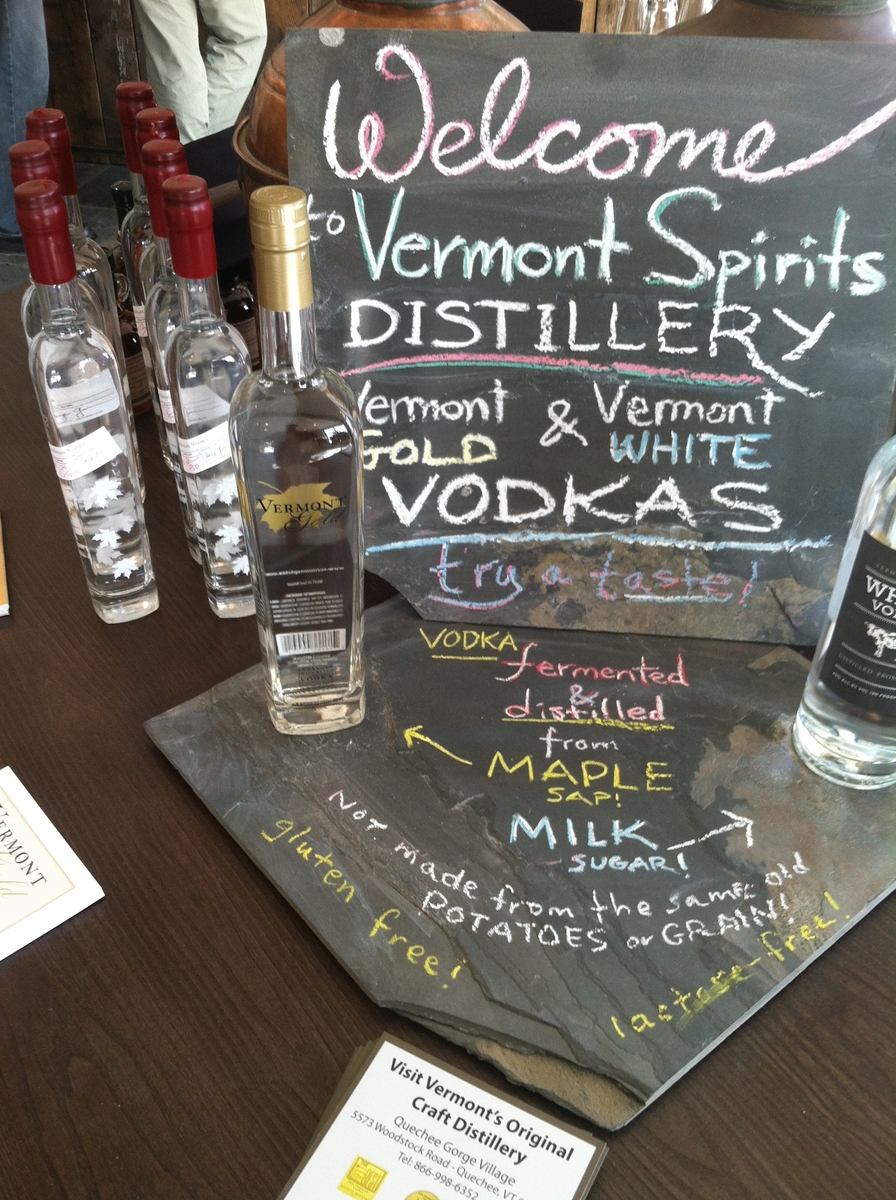 Welcome
to Vermont Spirits
DISTILLERY
Vermont & Vermont
GOLD WHITE
VODKAS
try a taste!
VODKA
fermented
&
distilled
from
MAPLE
SAP!
MILK
SUGAR!
Not made from the same old
POTATOES or GRAIN!
gluten free!
lactose-free!
VERMONT
Gold
VODKA
VERMONT
Gold
Visit Vermont's Original
Craft Distillery
Quechee Gorge Village
5573 Woodstock Road - Quechee, VT
Tel: 866-998-6352